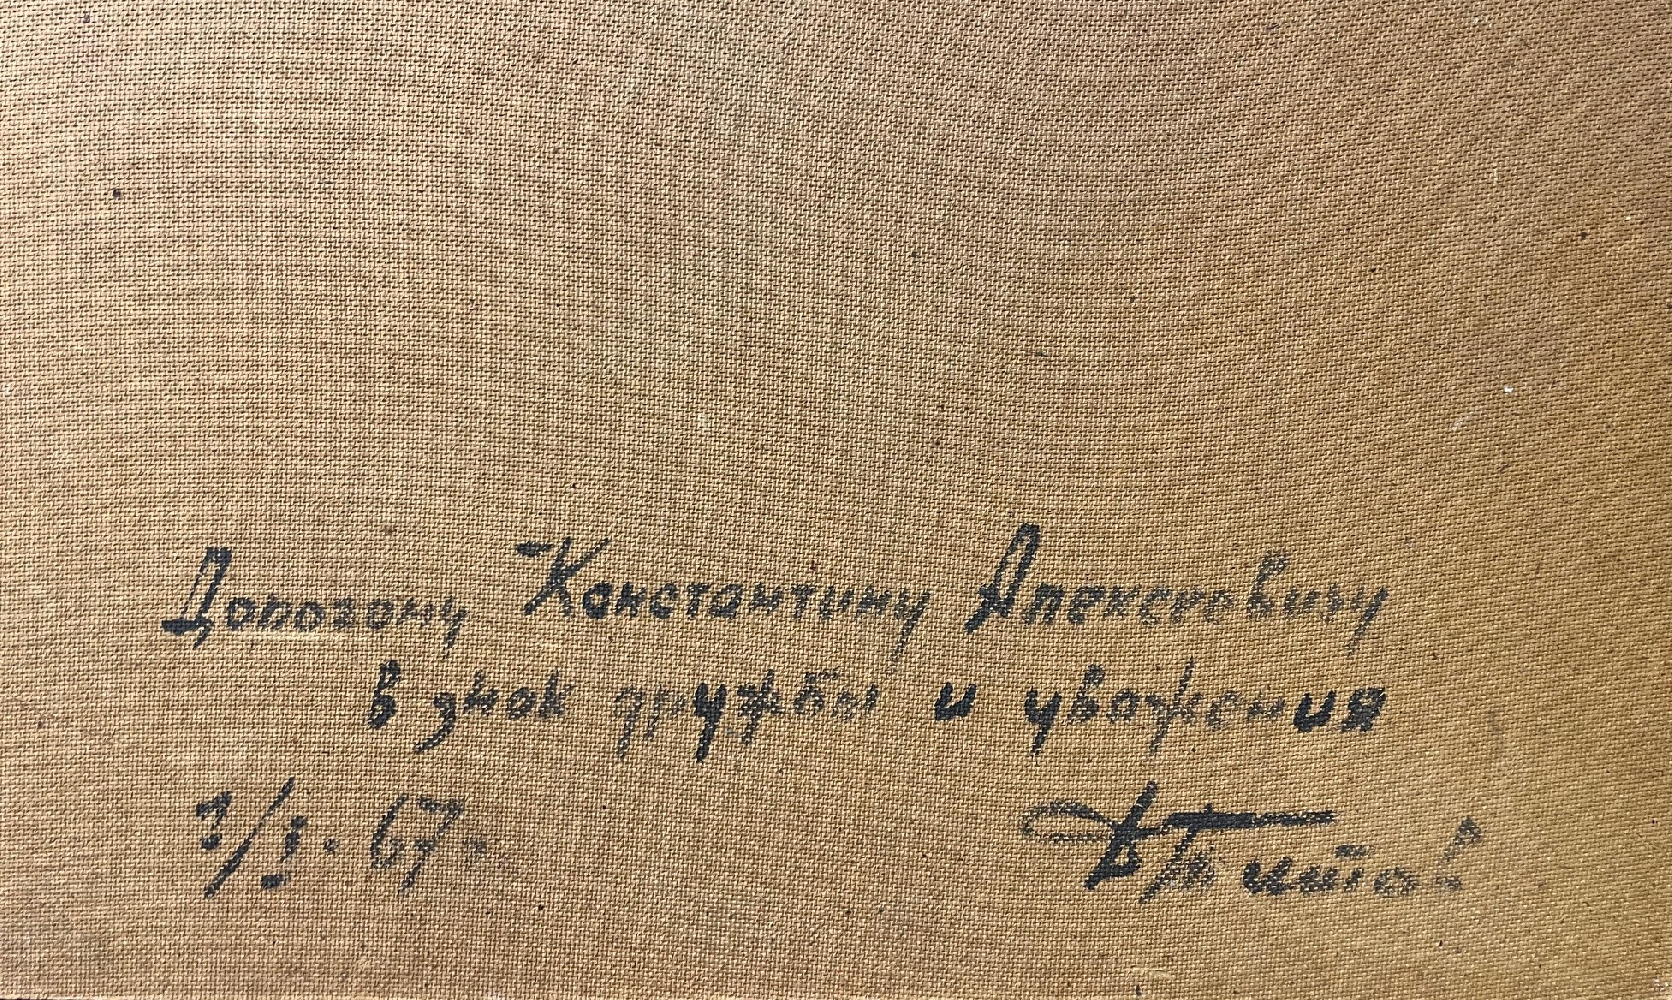 Дорогому Константину Алексеевичу
в знак дружбы и уважения
1/I. 67 г.